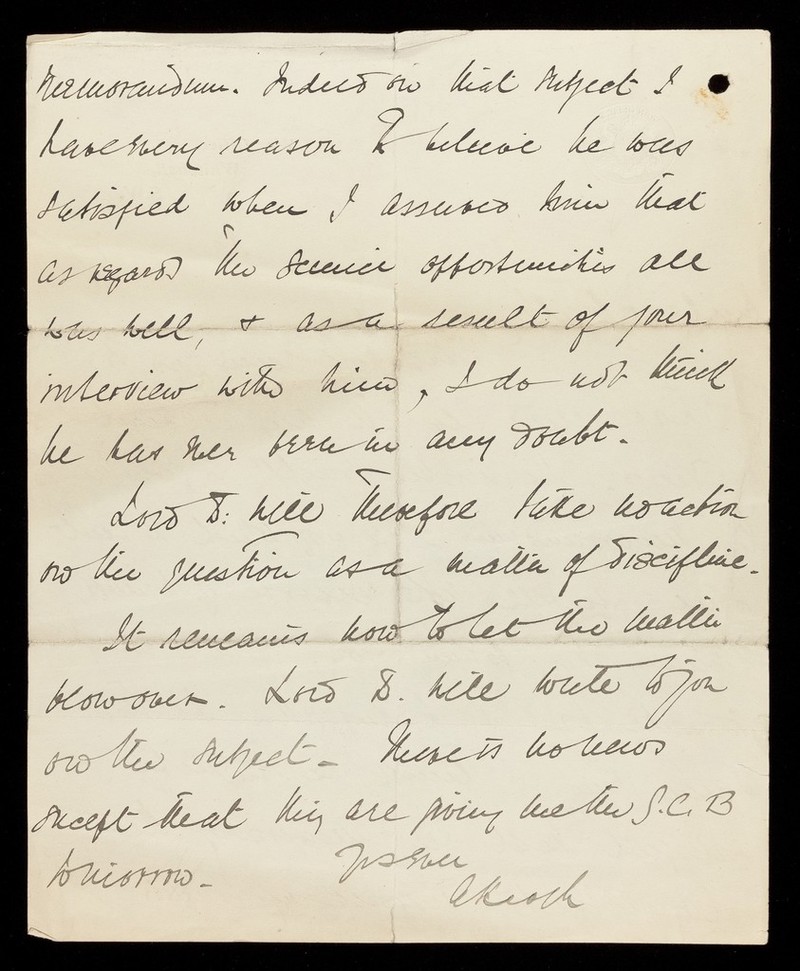 memorandum. Indeed on that subject I
have every reason to believe he was
satisfied when I assured him that
as regards the science opportunities all
was well, & as a result of your
interview with him, I do not think
he has ever been in any doubt.
Lord D: will therefore take no action
on the question as a matter of discipline.
It remains now to let the matter
blow over. Lord D. will write to you
on the subject - There is no news
except that they are giving me the G.C.B
tomorrow -
Yrs Ever
AKeogh